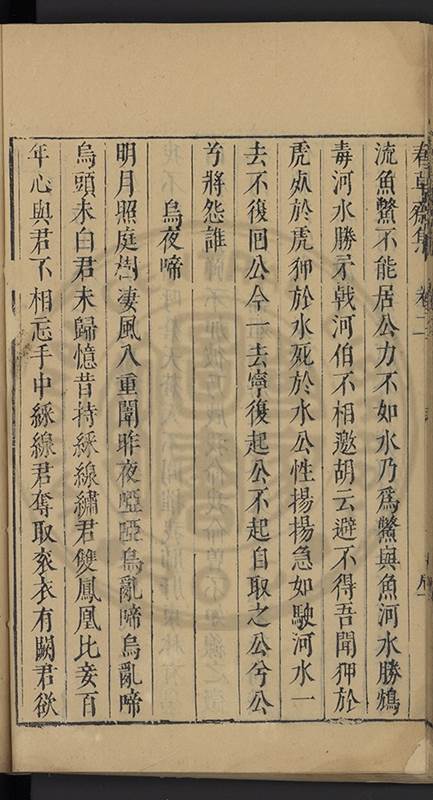 春草齋集　卷二
流魚鱉不能居公力不如水乃爲鱉與魚河水勝鴆
毒河水勝矛戟河伯不相邀胡云避不得吾聞狎於
虎死於虎狎於水死於水公性揚揚急如駛河水一
去不復回公今一去寧復起公不起自取之公兮公
兮將怨誰
烏夜啼
明月照庭樹淒風入重闈昨夜啞啞烏亂啼烏亂啼
烏頭未白君未歸憶昔持綵線繡君雙鳳凰比妾百
年心與君不相忘手中綵線君奪取衮衣有闕君欲